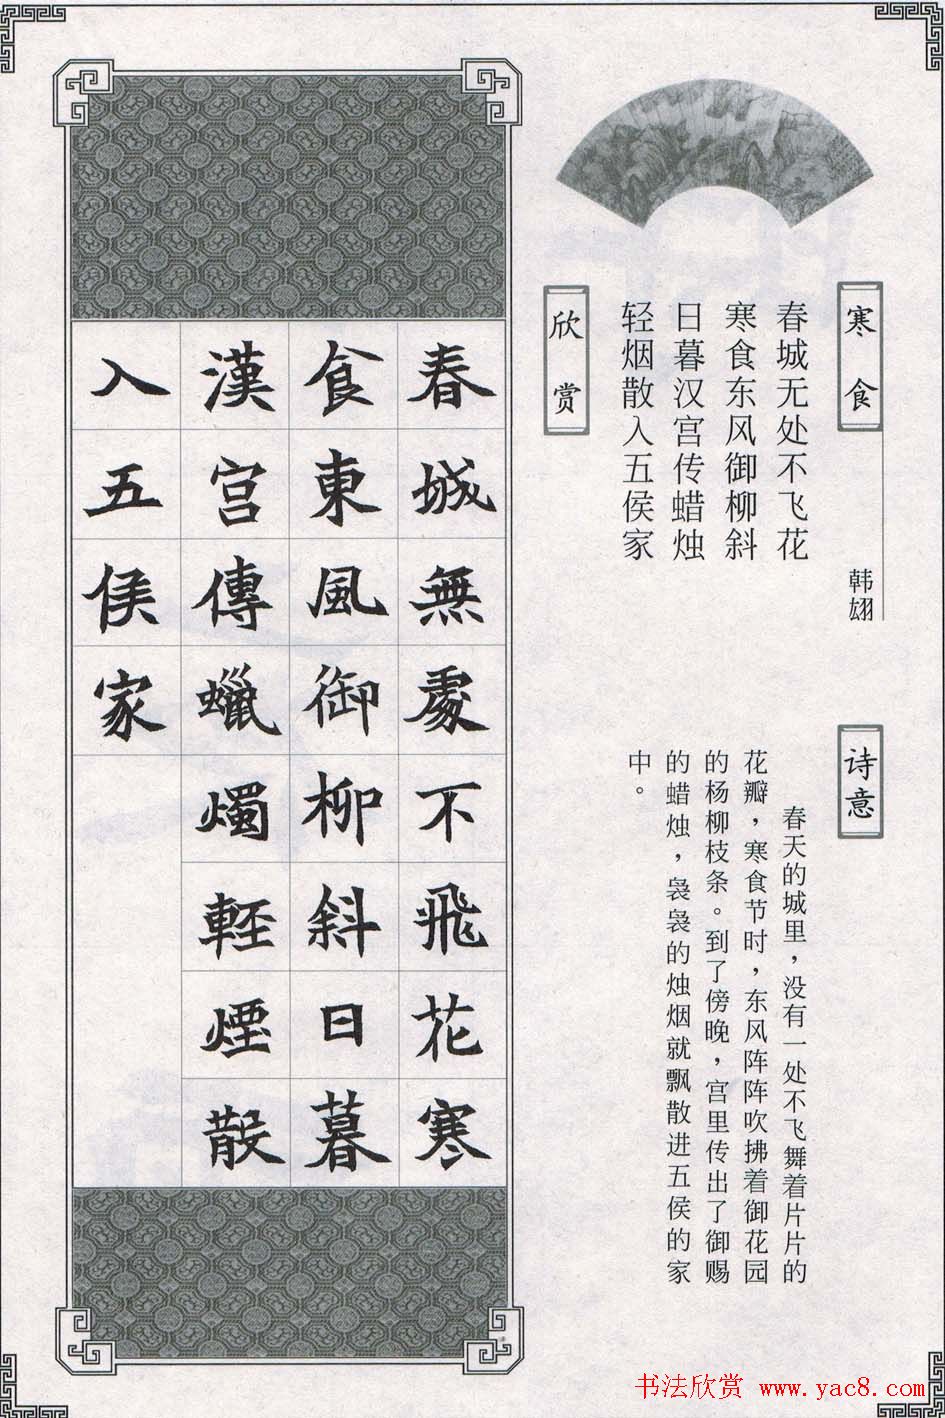 寒食
韩翃
春城无处不飞花
寒食东风御柳斜
日暮汉宫传蜡烛
轻烟散入五侯家
诗意
春天的城里，没有一处不飞舞着片片的
花瓣，寒食节时，东风阵阵吹拂着御花园
的杨柳枝条。到了傍晚，宫里传出了御赐
的蜡烛，袅袅的烛烟就飘散进五侯的家
中。
欣赏
春城無處不飛花寒
食東風御柳斜日暮
漢宮傳蠟燭輕煙散
入五侯家
书法欣赏 www.yac8.com